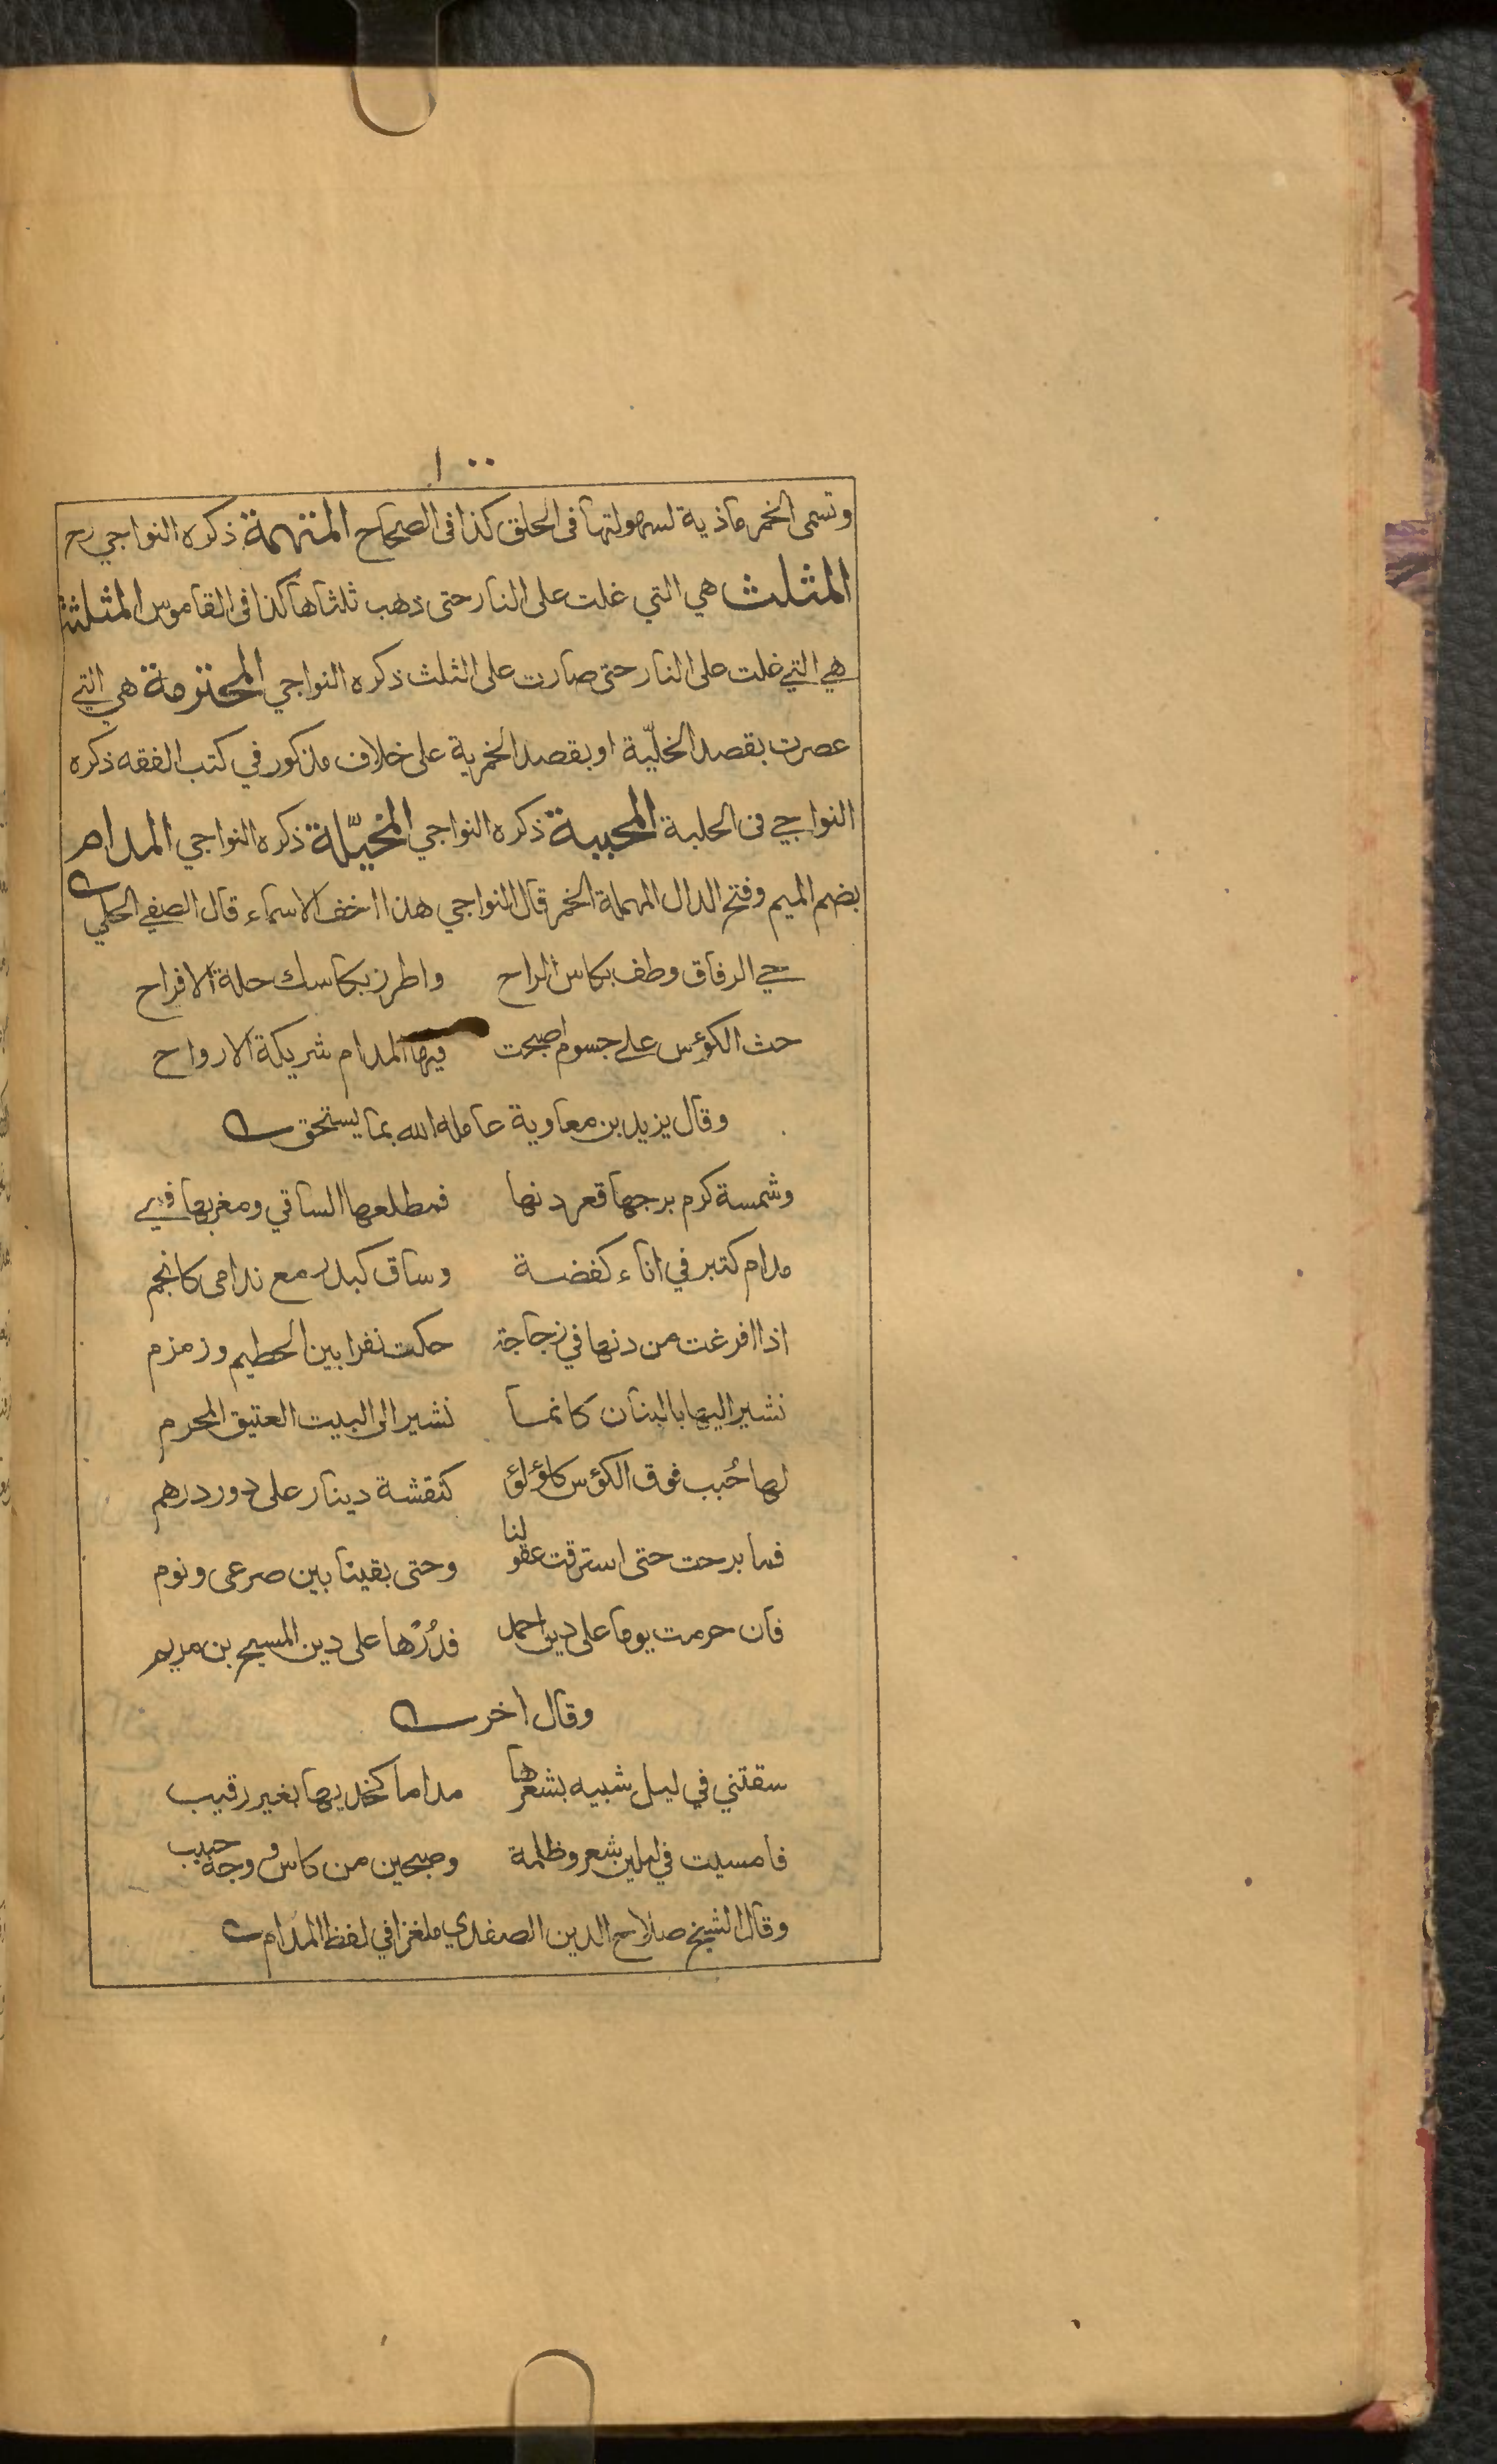 ١٠٠
وتسمى الخمر ماذية لسهولتها فى الحلق كذا فى الصحاح المنتهمة ذكره النواجي رح
المثلث هي التي غلت على النار حتى ذهب ثلثاها كذا فى القاموس المثلثة
هي التي غلت على النار حتى صارت على الثلث ذكره النواجي المحترمة هي التي
عصرت بقصد الخلّية او بقصد الخمرية على خلاف مذكور في كتب الفقه ذكره
النواجي فى الحلبة المحببة ذكره النواجي المخيّلة ذكره النواجي المدام
بضم الميم وفتح الدال المهملة الخمر قال النواجي هذا اخف الاسماء قال الصفي الحلي
حي الرفاق وطف بكاس الراح واطرز بكاسك حلة الافراح
حث الكؤس على جسوم اصبحت فيها المدام شريكة الارواح
وقال يزيد بن معاوية عامله الله بما يستحق
وشمسة كرم برجها قعر دنها فمطلعها الساقي ومغربها في
مدام كتبر في اناء كفضة وساق كبدر مع ندامى كانجم
اذا افرغت من دنها في زجاجة حكت نفرا بين الحطيم وزمزم
نشير اليها بالبنان كانما نشير الى البيت العتيق المحرم
لها حُبب فوق الكؤس كلؤلؤ كنقشة دينار على دور درهم
فما برحت حتى استرقت عقولنا وحتى بقينا بين صرعى ونوم
فان حرمت يوما على دين احمد فدُرْها على دين المسيح بن مريم
وقال اخر
سقتني في ليل شبيه بشعرها مداما كخديها بغير رقيب
فامسيت في ليلين شعر وظلمة وصبحين من كاس ووجه حبيب
وقال الشيخ صلاح الدين الصفدي ملغزا في لفظ المدام